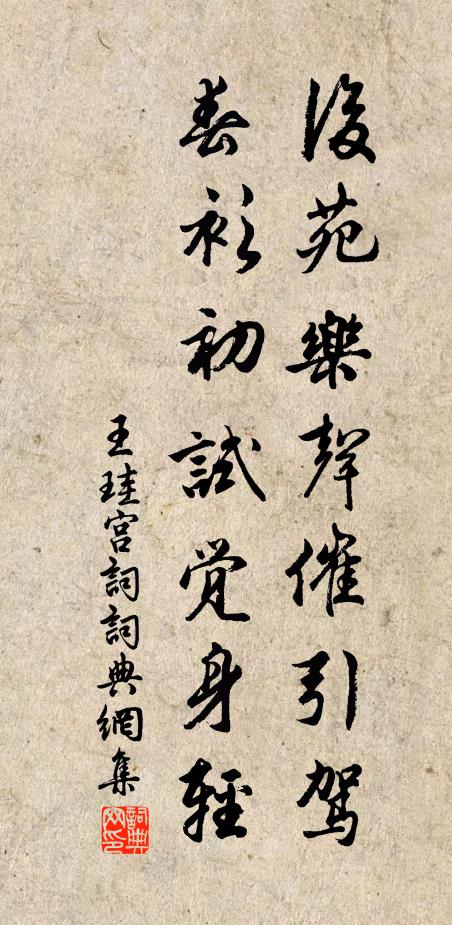 後苑樂聲催引駕
春衫初試覺身輕
王珪宮詞詞典網集
詞典網印